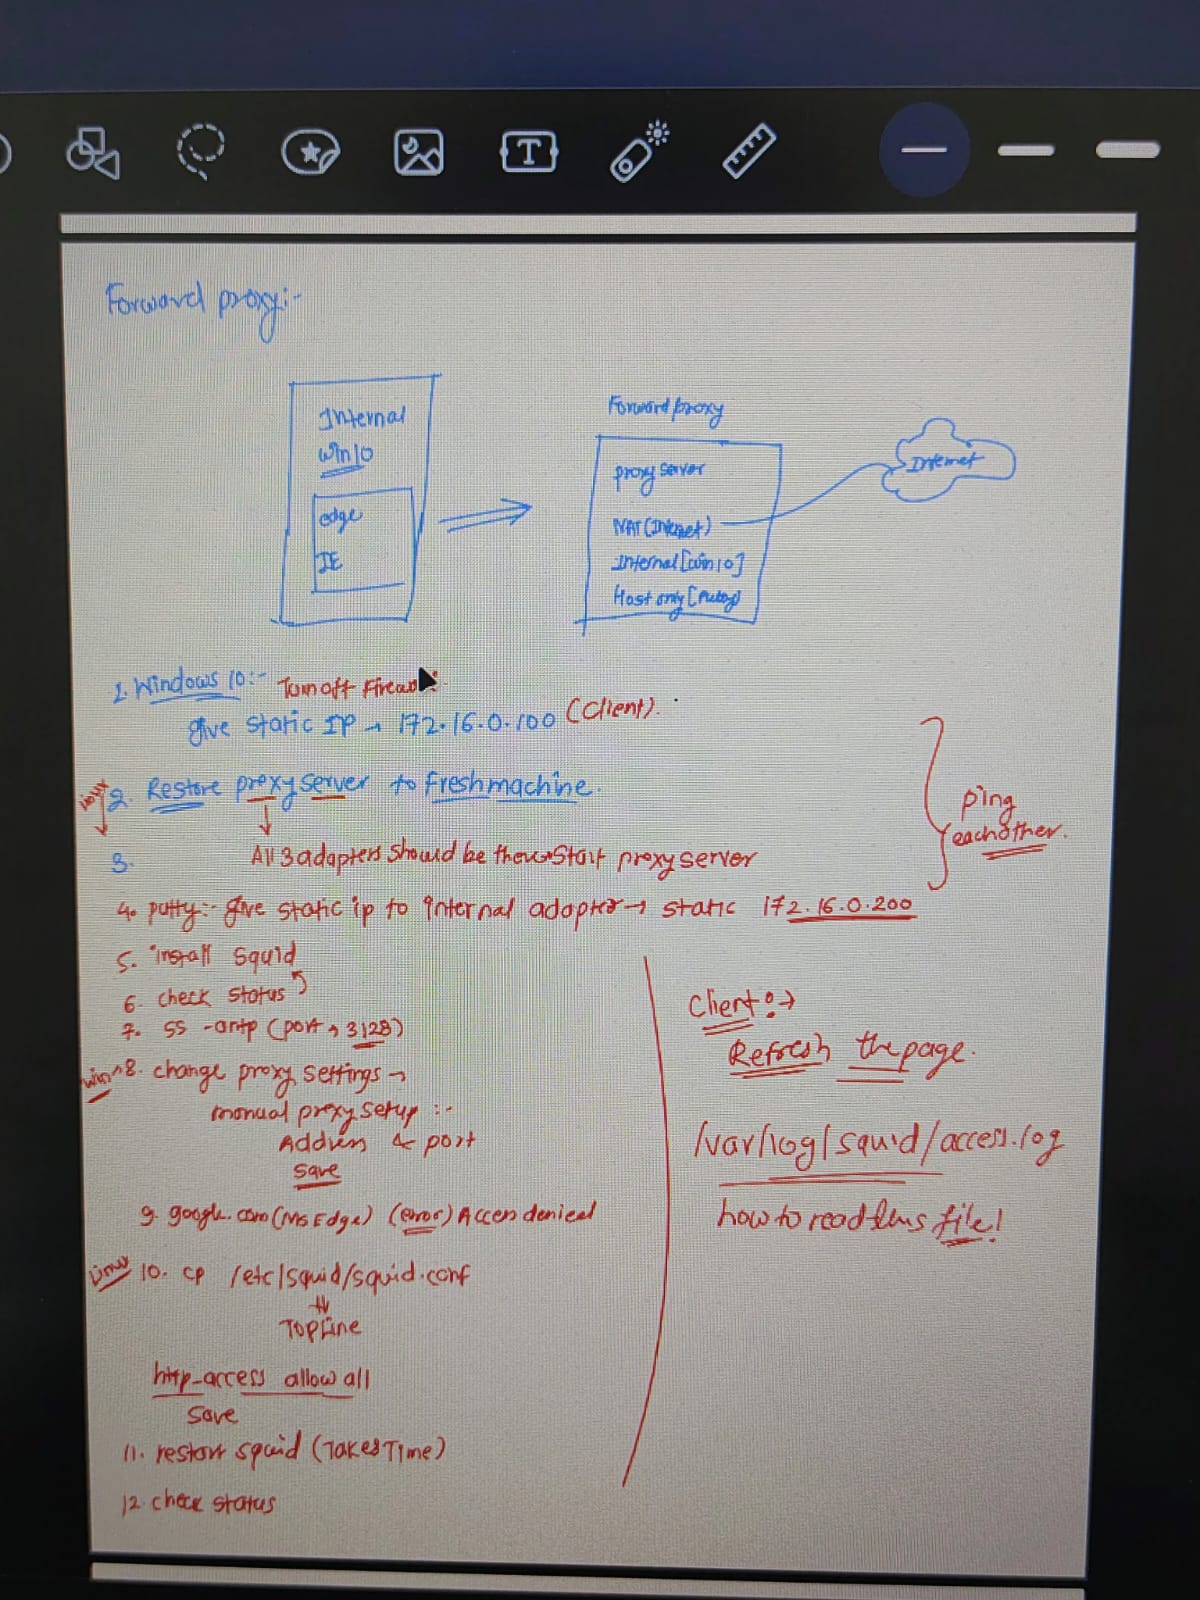 Forward proxy:-
Internal
Win10
edge
IE
Forward proxy
proxy server
NAT (Internet)
Internal [win10]
Host only [Putty]
Internet
1. Windows 10:- Turn off Firewall
give static IP → 172.16.0.100 (Client).
linux 2. Restore proxy server to Fresh machine.
3. All 3 adapters should be there → Start proxy server
ping
eachother.
4. putty:- give static ip to internal adapter → static 172.16.0.200
5. install squid
6. check status
7. ss -antp (port → 3128)
win 8. change proxy settings →
manual proxy setup :-
Address & port
save
9. google.com (MS Edge) (error) Access denied
Linux 10. cp /etc/squid/squid.conf
Top line
http_access allow all
save
11. restart squid (Takes Time)
12. check status
Client:→
Refresh the page.
/var/log/squid/access.log
how to read this file!